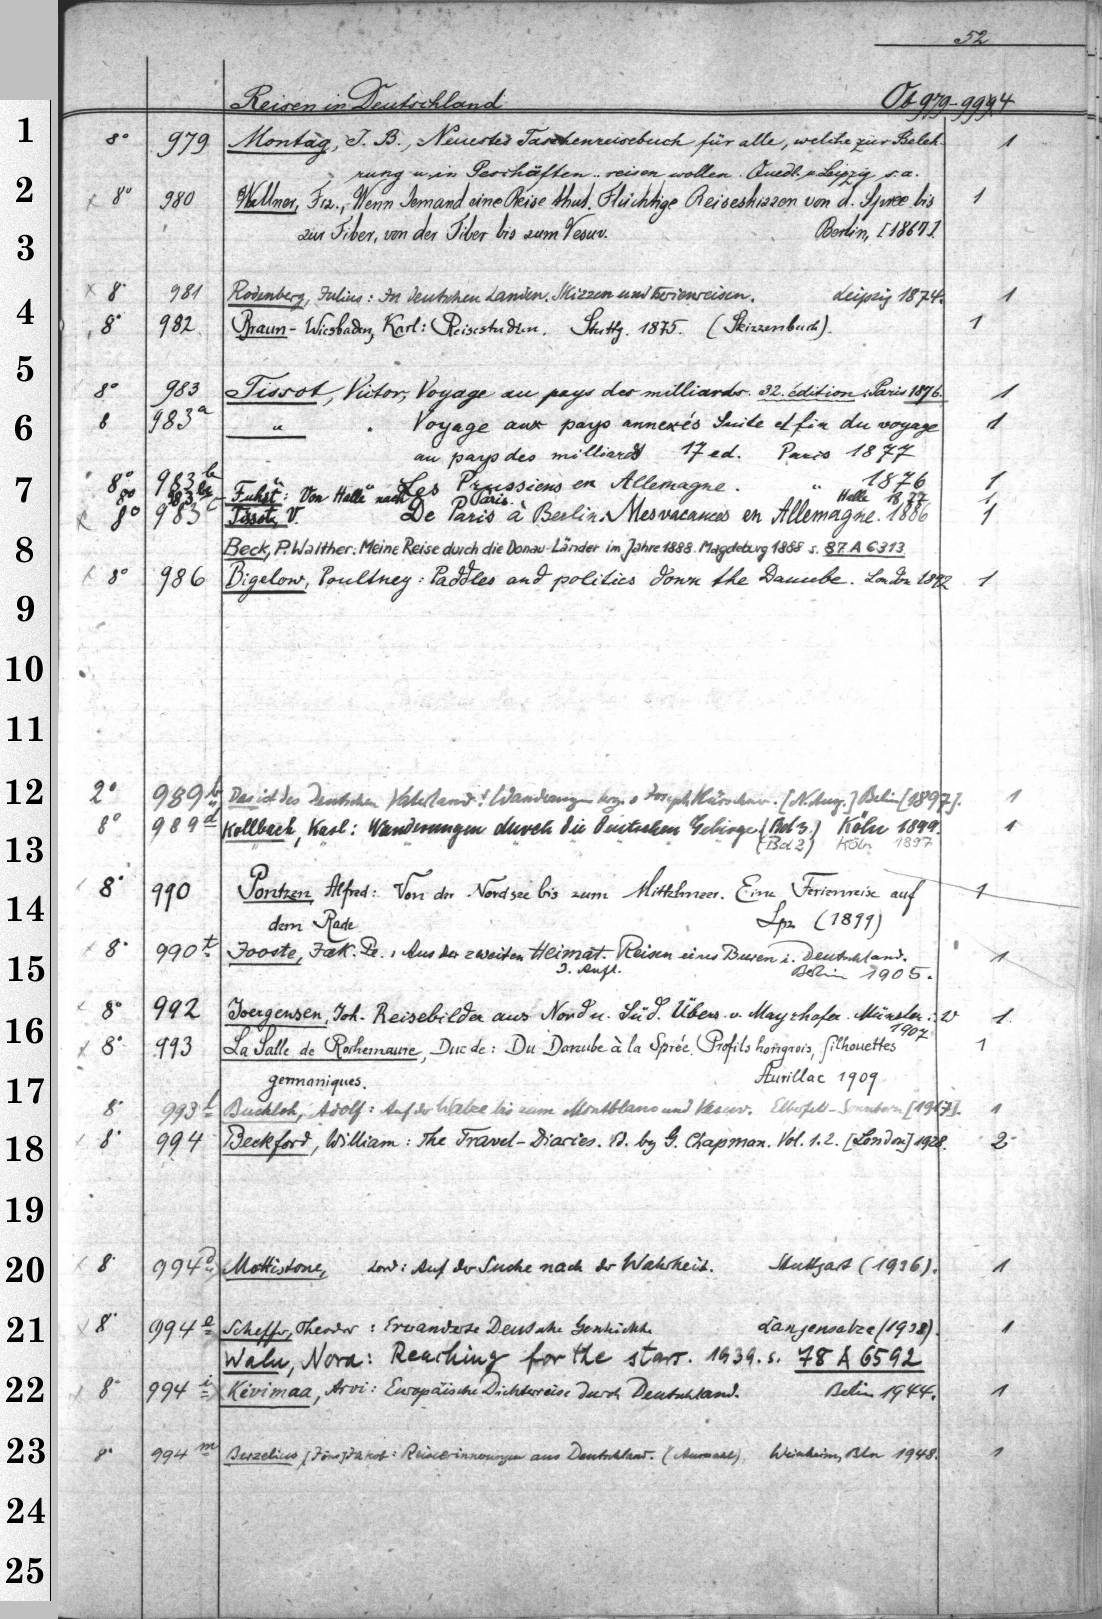 52
Reisen in Deutschland Ob 979-994
1 8° 979 Montag, J. B., Neuestes Taschenreisebuch für alle, welche zur Beleh- 1
rung u. in Geschäften .. reisen wollen. Quedl. u Leipzig s.a.
2 x 8° 980 Wallner, Frz., Wenn Jemand eine Reise thut. Flüchtige Reiseskizzen von d. Spree bis 1
3 zur Tiber, von der Tiber bis zum Vesuv. Berlin, [1867].
x 8° 981 Rodenberg, Julius: In deutschen Landen. Skizzen und Ferienreisen. Leipzig 1874. 1
4 8° 982 Braun-Wiesbaden, Karl: Reisestudien. Stuttg. 1875. (Skizzenbuch). 1
5 8° 983 Tissot, Victor, Voyage au pays des milliards. 32. édition. Paris 1876. 1
6 8 983a " . Voyage aux pays annexés Suite et fin du voyage 1
au pays des milliards 17 ed. Paris 1877
7 8° 983b " " Les Prussiens en Allemagne. " 1876 1
8° 983 Fuhst: Von Halle nach Paris. Halle 1877 1
x 8° 983c Tissot, V. De Paris à Berlin. Mes vacances en Allemagne. 1886 1
8 Beck, P. Walther: Meine Reise durch die Donau-Länder im Jahre 1888. Magdeburg 1888 s. 87 A 6313
x 8° 986 Bigelow, Poultney: Paddles and politics down the Danube. London 1892 1
9
10
11
12 2° 989b Das ist des Deutschen Vaterland! Wanderungen hrsg. v Joseph Kürschner. Berlin [1897]. 1
8° 989d Kollbach, Karl: Wanderungen durch die Deutschen Gebirge (Bd 3.) Köln 1899. 1
13 (Bd 2) Köln 1897
8° 990 Pontzen, Alfred: Von der Nordsee bis zum Mittelmeer. Eine Ferienreise auf 1
14 dem Rade Lpz (1899)
x 8° 990t Jooste, Jak. Pe.: Aus der zweiten Heimat. Reisen eines Buren i. Deutschland. 1
15 3. Aufl. Berlin 1905.
x 8° 992 Joergensen, Joh. Reisebilder aus Nord u. Süd. Übers. v. Mayrhofer. Münster i. W 1
16 1907
x 8° 993 La Salle de Rochemaure, Duc de: Du Danube à la Sprée. Profils hongrois, silhouettes 1
17 germaniques. Aurillac 1909
8° 993f Buchloh, Adolf: Auf der Walze bis zum Montblanc und Vesuv. Elberfeld-Sonnborn [1917]. 1
18 x 8° 994 Beckford, William: The Travel-Diaries. Ed. by G. Chapman. Vol. 1.2. [London] 1928. 2
19
20 x 8° 994d Mottistone, Lord: Auf der Suche nach der Wahrheit. Stuttgart (1936). 1
21 x 8° 994e Scheffer, Theodor: Erwanderte Deutsche Geschichte. Langensalza (1938). 1
Waln, Nora: Reaching for the stars. 1939. s. 78 A 6592
22 x 8° 994i Kivimaa, Arvi: Europäische Dichterreise durch Deutschland. Berlin 1944. 1
23 8° 994m Berzelius, [Jöns] Jakob: Reiseerinnerungen aus Deutschland. (Auswahl) Weinheim, Bln 1948. 1
24
25